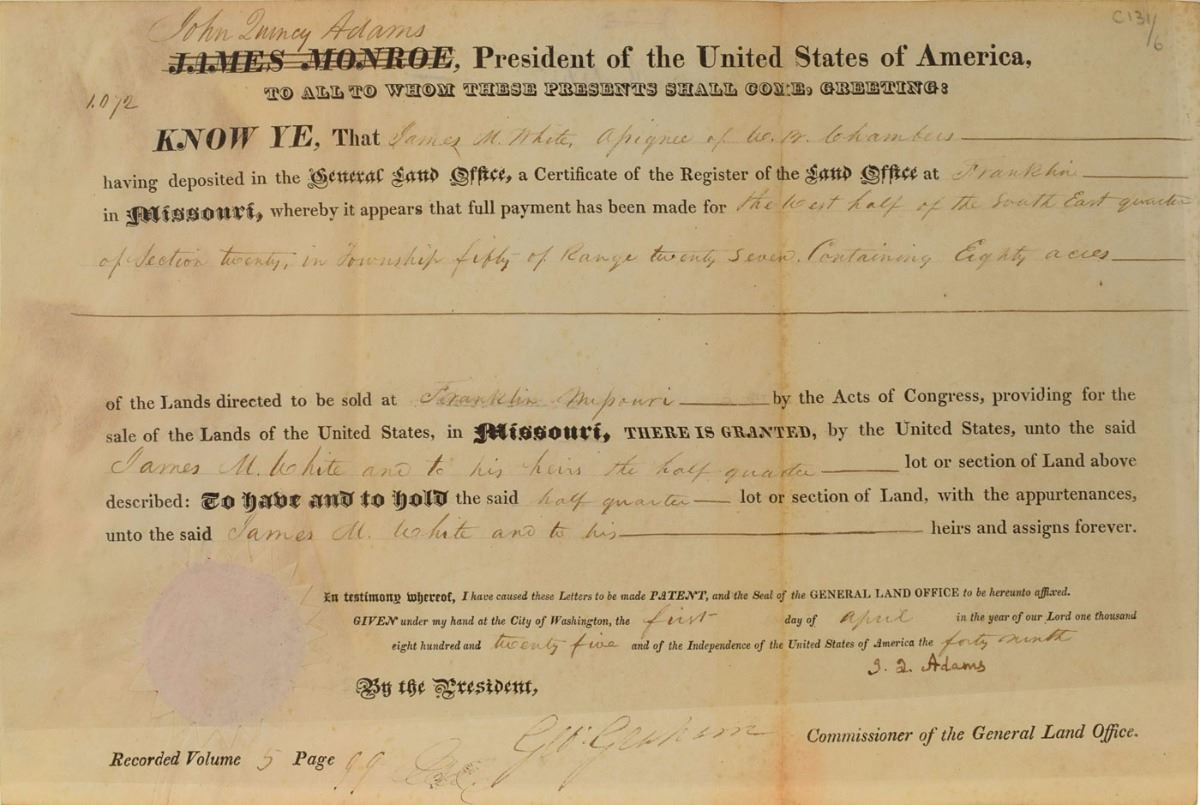 C131/6
John Quincy Adams
JAMES MONROE, President of the United States of America,
TO ALL TO WHOM THESE PRESENTS SHALL COME, GREETING:
1072
KNOW YE, That James M. White, Assignee of W. W. Chambers
having deposited in the General Land Office, a Certificate of the Register of the Land Office at Franklin
in Missouri, whereby it appears that full payment has been made for the West half of the South East quarter
of Section twenty, in Township fifty of Range twenty Seven. Containing Eighty acres
of the Lands directed to be sold at Franklin Missouri by the Acts of Congress, providing for the
sale of the Lands of the United States, in Missouri, THERE IS GRANTED, by the United States, unto the said
James M. White and to his heirs the half quarter lot or section of Land above
described: To have and to hold the said half quarter lot or section of Land, with the appurtenances,
unto the said James M. White and to his heirs and assigns forever.
In testimony whereof, I have caused these Letters to be made PATENT, and the Seal of the GENERAL LAND OFFICE to be hereunto affixed.
GIVEN under my hand at the City of Washington, the first day of April in the year of our Lord one thousand
eight hundred and twenty five and of the Independence of the United States of America the forty ninth
J. Q. Adams
By the President,
Geo: Graham Commissioner of the General Land Office.
Recorded Volume 5 Page 99